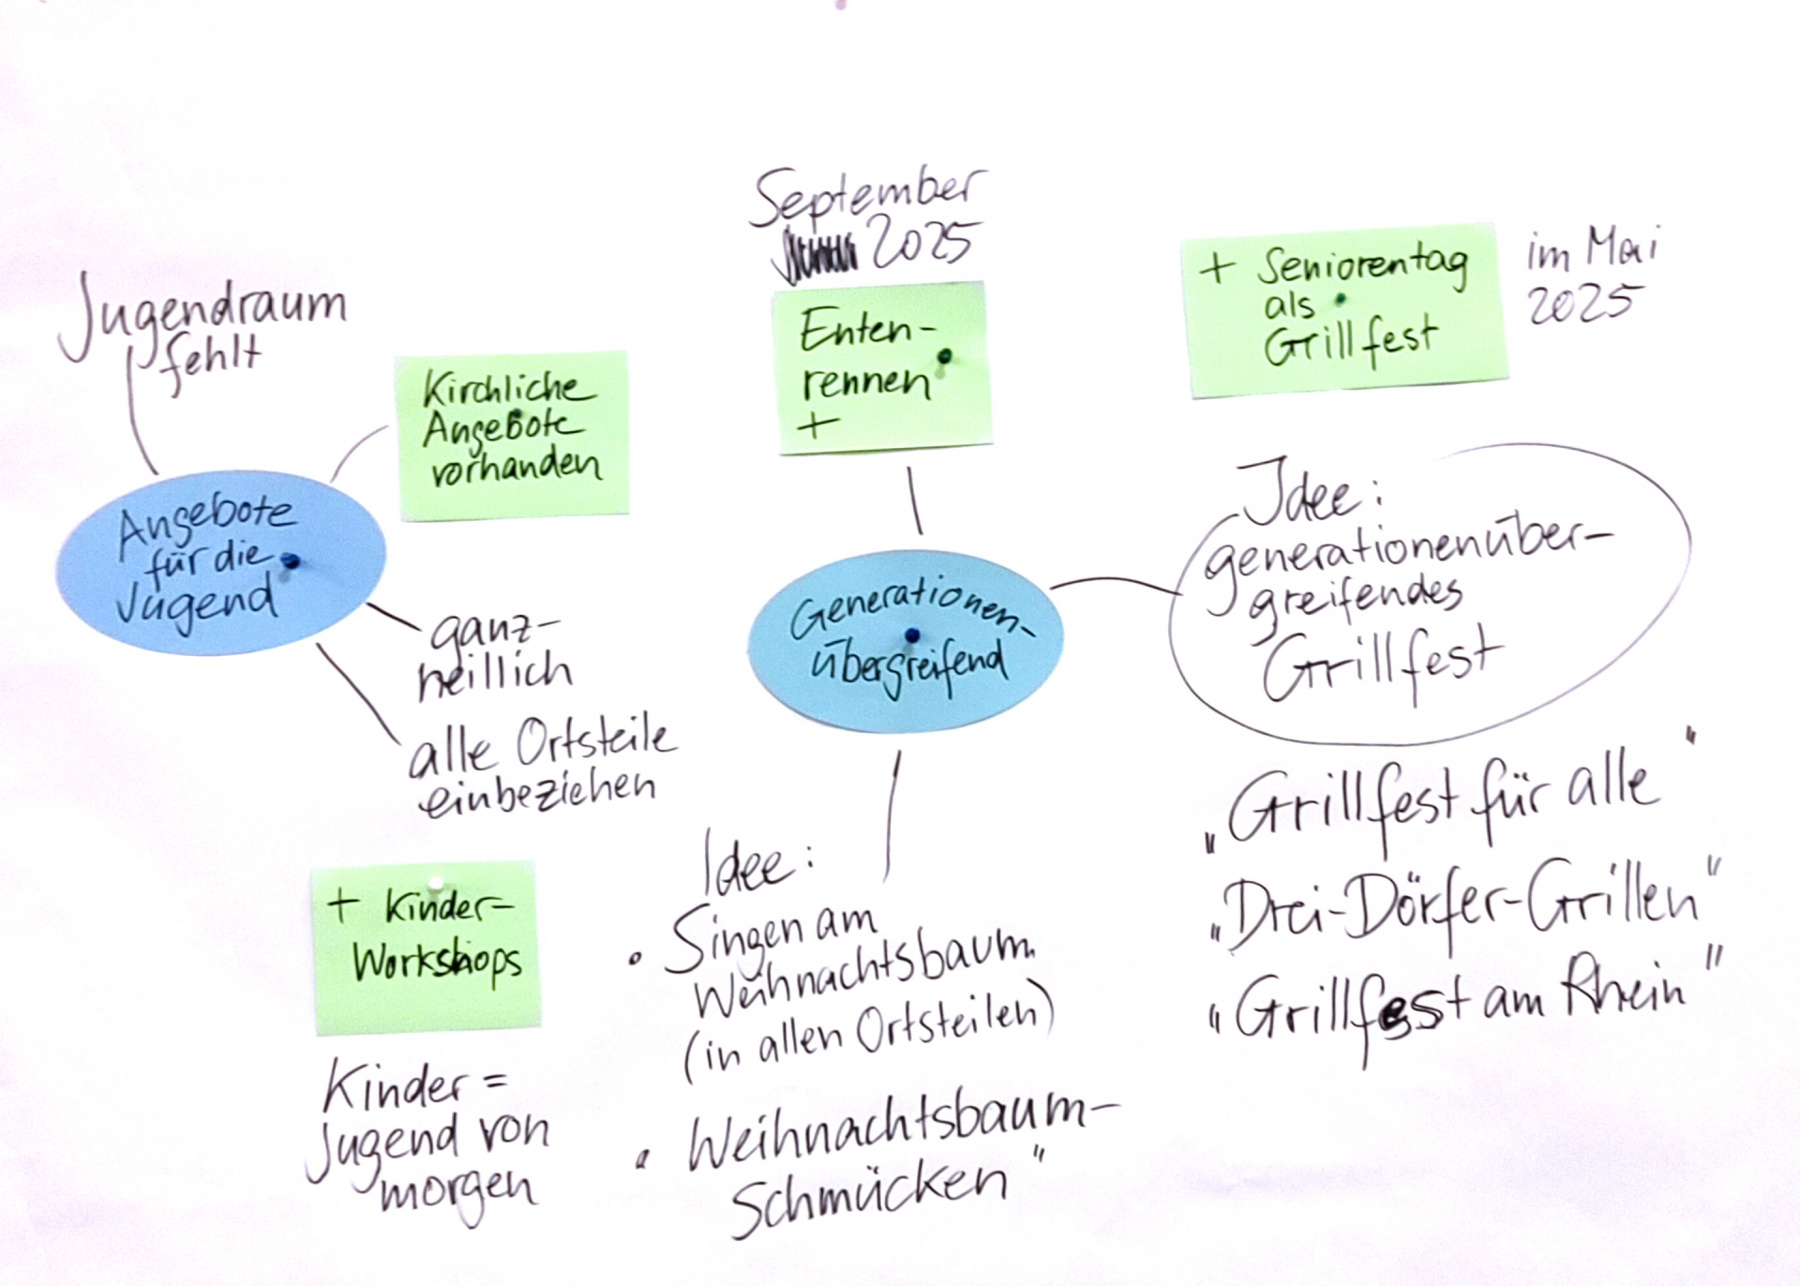 Jugendraum
fehlt
Kirchliche
Angebote
vorhanden
Angebote
für die
Jugend
ganz-
heillich
alle Ortsteile
einbeziehen
+ Kinder-
Workshops
Kinder =
Jugend von
morgen
September
2025
Enten-
rennen
+
Generationen-
übergreifend
Idee:
• Singen am
Weihnachtsbaum
(in allen Ortsteilen)
• Weihnachtsbaum-
Schmücken"
+ Seniorentag
als
Grillfest
im Mai
2025
Idee:
generationenüber-
greifendes
Grillfest
„Grillfest für alle"
„Drei-Dörfer-Grillen"
"Grillfest am Rhein"